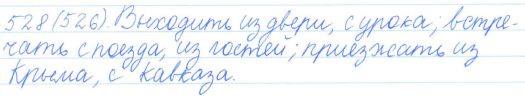 528 (526). Выходить из двери, с урока; встре-
чать с поезда, из гостей; приезжать из
Крыма, с Кавказа.